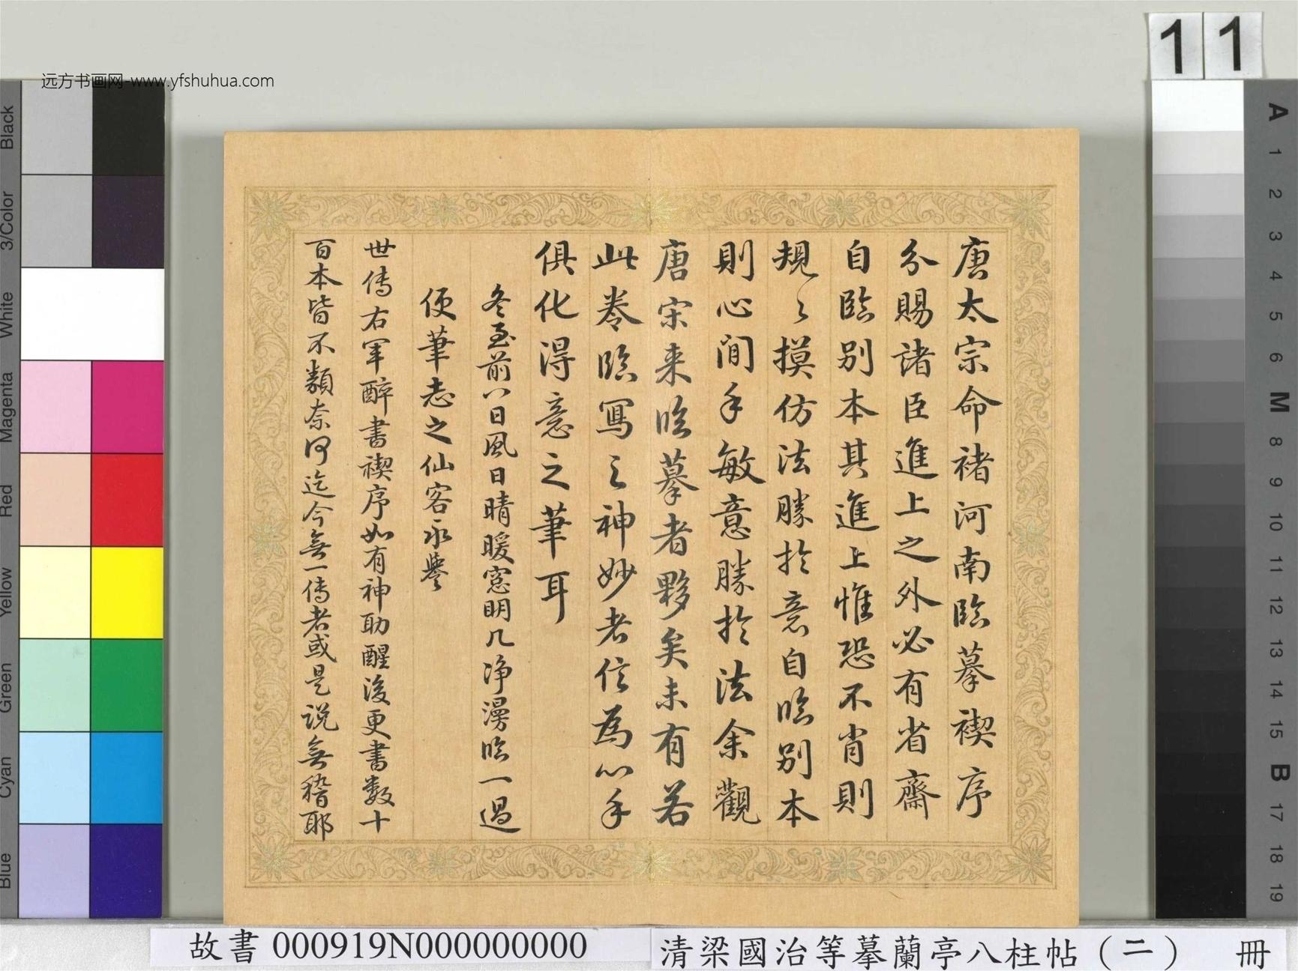 远方书画网-www.yfshuhua.com
11
唐太宗命褚河南臨摹禊序
分賜諸臣進上之外必有省齋
自臨别本其進上惟恐不肖則
規々摸仿法勝於意自臨别本
則心閒手敏意勝於法余觀
唐宋来臨摹者夥矣未有若
此卷臨寫之神妙者信為心手
俱化得意之筆耳
冬至前八日風日晴暖窓明几净漫臨一過
便筆志之仙客永譽
世傳右軍醉書禊序如有神助醒後更書數十
百本皆不類奈何迄今無一傳者或是説無稽耶
Black
3/Color
White
Magenta
Red
Yellow
Green
Cyan
Blue
A
1
2
3
4
5
6
M
8
9
10
11
12
13
14
15
B
17
18
19
故書 000919N000000000
清梁國治等摹蘭亭八柱帖（二） 冊